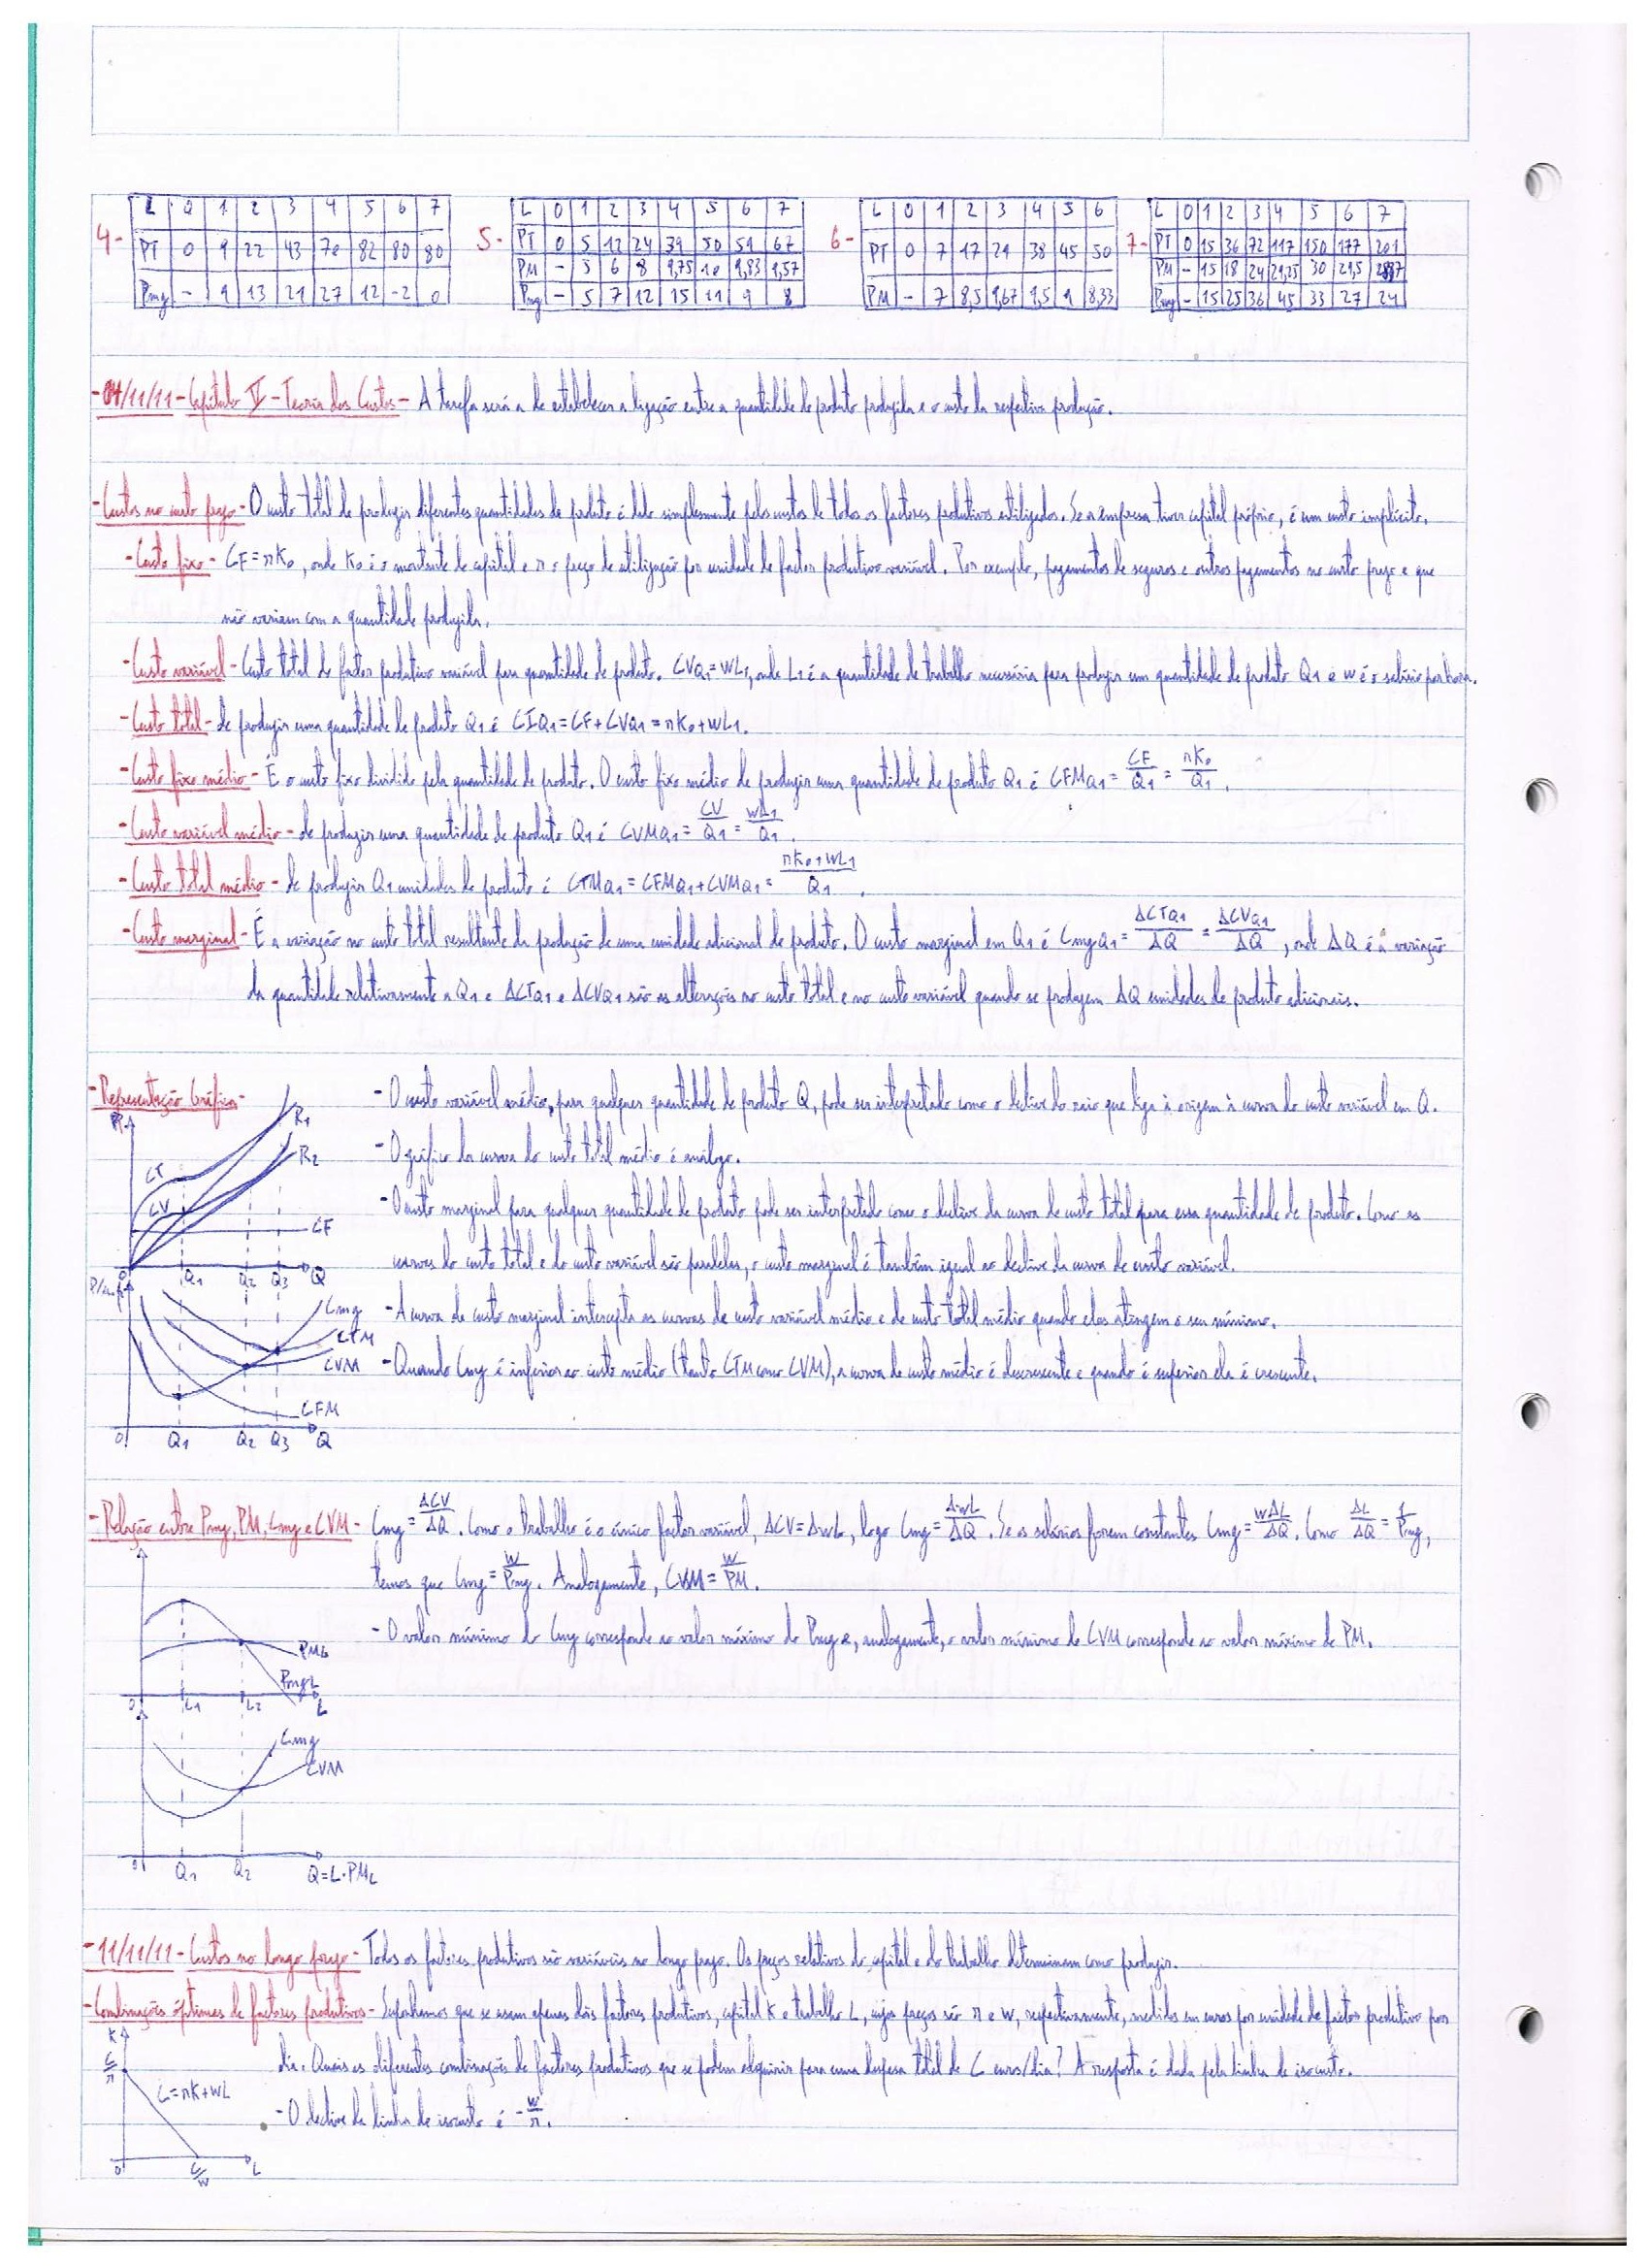 4-
L 0 1 2 3 4 5 6 7
PT 0 9 22 43 70 82 80 80
Pmg - 9 13 21 27 12 -2 0
5-
L 0 1 2 3 4 5 6 7
PT 0 5 12 24 39 50 59 67
PM - 5 6 8 9,75 10 9,83 9,57
Pmg - 5 7 12 15 11 9 8
6-
L 0 1 2 3 4 5 6
PT 0 7 17 29 38 45 50
PM - 7 8,5 9,67 9,5 9 8,33
7-
L 0 1 2 3 4 5 6 7
PT 0 15 36 72 117 150 177 201
PM - 15 18 24 29,25 30 29,5
Pmg - 15 25 36 45 33 27 24
-04/11/11-Capítulo V-Teoria dos Custos- A tarefa será a de estabelecer a ligação entre a quantidade de produto produzida e o custo da respetiva produção.
-Custos no curto prazo- O custo total de produzir diferentes quantidades de produto é dado simplesmente pelos custos de todos os factores produtivos utilizados. Se a empresa tiver capital próprio, é um custo implícito.
-Custo fixo- CF=rK₀, onde K₀ é o montante de capital e r o preço de utilização por unidade de factor produtivo variável. Por exemplo, pagamentos de seguros e outros pagamentos no curto prazo e que
não variam com a quantidade produzida.
-Custo variável- Custo total do factor produtivo variável para quantidade de produto. CVQ₁=WL₁, onde L₁ é a quantidade de trabalho necessária para produzir uma quantidade de produto Q₁ e W é o salário por hora.
-Custo total- de produzir uma quantidade de produto Q₁ é CTQ₁=CF+CVQ₁=rK₀+WL₁.
-Custo fixo médio- É o custo fixo dividido pela quantidade de produto. O custo fixo médio de produzir uma quantidade de produto Q₁ é CFMQ₁=CF/Q₁=rK₀/Q₁.
-Custo variável médio- de produzir uma quantidade de produto Q₁ é CVMQ₁=CV/Q₁=WL₁/Q₁.
-Custo total médio- de produzir Q₁ unidades de produto é CTMQ₁=CFMQ₁+CVMQ₁=rK₀+WL₁/Q₁.
-Custo marginal- É a variação no custo total resultante da produção de uma unidade adicional de produto. O custo marginal em Q₁ é CmgQ₁=ΔCTQ₁/ΔQ=ΔCVQ₁/ΔQ, onde ΔQ é a variação
da quantidade relativamente a Q₁ e ΔCTQ₁ e ΔCVQ₁ são as alterações no custo total e no custo variável quando se produzem ΔQ unidades de produto adicionais.
-Representação Gráfica-
R₁
R₂
CT
CV
CF
0 Q₁ Q₂ Q₃ Q
Cmg
CTM
CVM
CFM
0 Q₁ Q₂ Q₃ Q
-O custo variável médio, para qualquer quantidade de produto Q, pode ser interpretado como o declive do raio que liga a origem à curva do custo variável em Q.
-O gráfico da curva do custo total médio é análogo.
-O custo marginal para qualquer quantidade de produto pode ser interpretado como o declive da curva de custo total para essa quantidade de produto. Como as
curvas do custo total e do custo variável são paralelas, o custo marginal é também igual ao declive da curva de custo variável.
-A curva de custo marginal intercepta as curvas de custo variável médio e de custo total médio quando elas atingem o seu mínimo.
-Quando Cmg é inferior ao custo médio (tanto CTM como CVM), a curva de custo médio é decrescente e quando é superior ela é crescente.
-Relação entre Pmg, PM, Cmg e CVM- Cmg=ΔCV/ΔQ. Como o trabalho é o único factor variável, ΔCV=ΔWL, logo Cmg=ΔWL/ΔQ. Se os salários forem constantes Cmg=WΔL/ΔQ. Como ΔL/ΔQ=1/Pmg,
temos que Cmg=W/Pmg. Analogamente, CVM=W/PM.
-O valor mínimo do Cmg corresponde ao valor máximo do Pmg e, analogamente, o valor mínimo do CVM corresponde ao valor máximo do PM.
PML
PmgL
0 L₁ L₂ L
Cmg
CVM
0 Q₁ Q₂ Q=L·PML
-11/11/11-Custos no longo prazo- Todos os factores produtivos são variáveis no longo prazo. Os preços relativos do capital e do trabalho determinam como produzir.
-Combinações óptimas de factores produtivos- Suponhamos que se usam apenas dois factores produtivos, capital K e trabalho L, cujos preços são r e W, respectivamente, medidos em euros por unidade de factor produtivo por
dia. Quais as diferentes combinações de factores produtivos que se podem adquirir para uma despesa total de C euros/dia? A resposta é dada pela linha de isocusto.
-O declive da linha de isocusto é -W/r.
K
C/r
C=rK+WL
0 C/W L